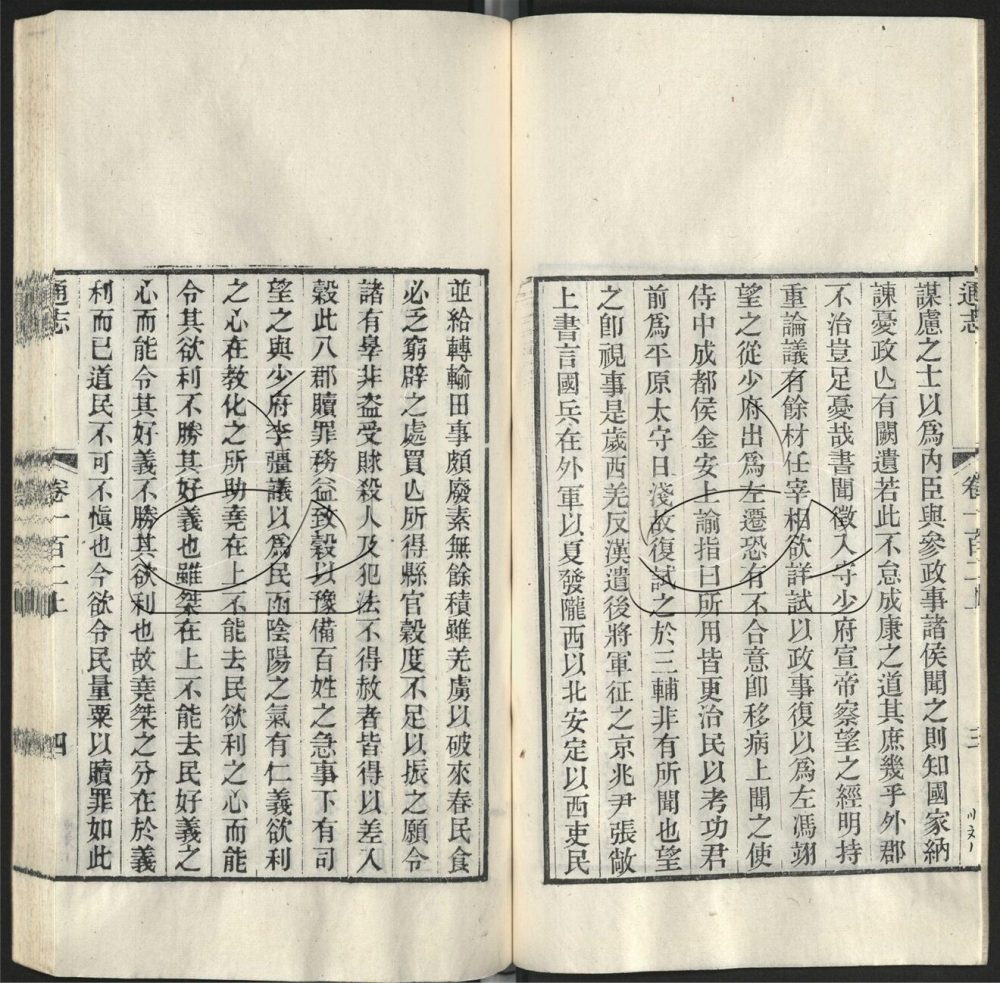 通志
卷一百二上
三
謀慮之士以爲内臣與參政事諸侯聞之則知國家納
諫憂政亾有闕遺若此不怠成康之道其庶幾乎外郡
不治豈足憂哉書聞徵入守少府宣帝察望之經明持
重論議有餘材任宰相欲詳試以政事復以爲左馮翊
望之從少府出爲左遷恐有不合意卽移病上聞之使
侍中成都侯金安上諭指曰所用皆更治民以考功君
前爲平原太守日淺故復試之於三輔非有所聞也望
之卽視事是歲西羌反漢遣後將軍征之京兆尹張敞
上書言國兵在外軍以夏發隴西以北安定以西吏民
並給轉輸田事頗廢素無餘積雖羌虜以破來春民食
必乏窮辟之處買亾所得縣官穀度不足以振之願令
諸有辠非盗受賕殺人及犯法不得赦者皆得以差入
穀此八郡贖罪務益致穀以豫備百姓之急事下有司
望之與少府李彊議以爲民函陰陽之氣有仁義欲利
之心在教化之所助堯在上不能去民欲利之心而能
令其欲利不勝其好義也雖桀在上不能去民好義之
心而能令其好義不勝其欲利也故堯桀之分在於義
利而已道民不可不愼也今欲令民量粟以贖罪如此
通志
卷一百二上
四